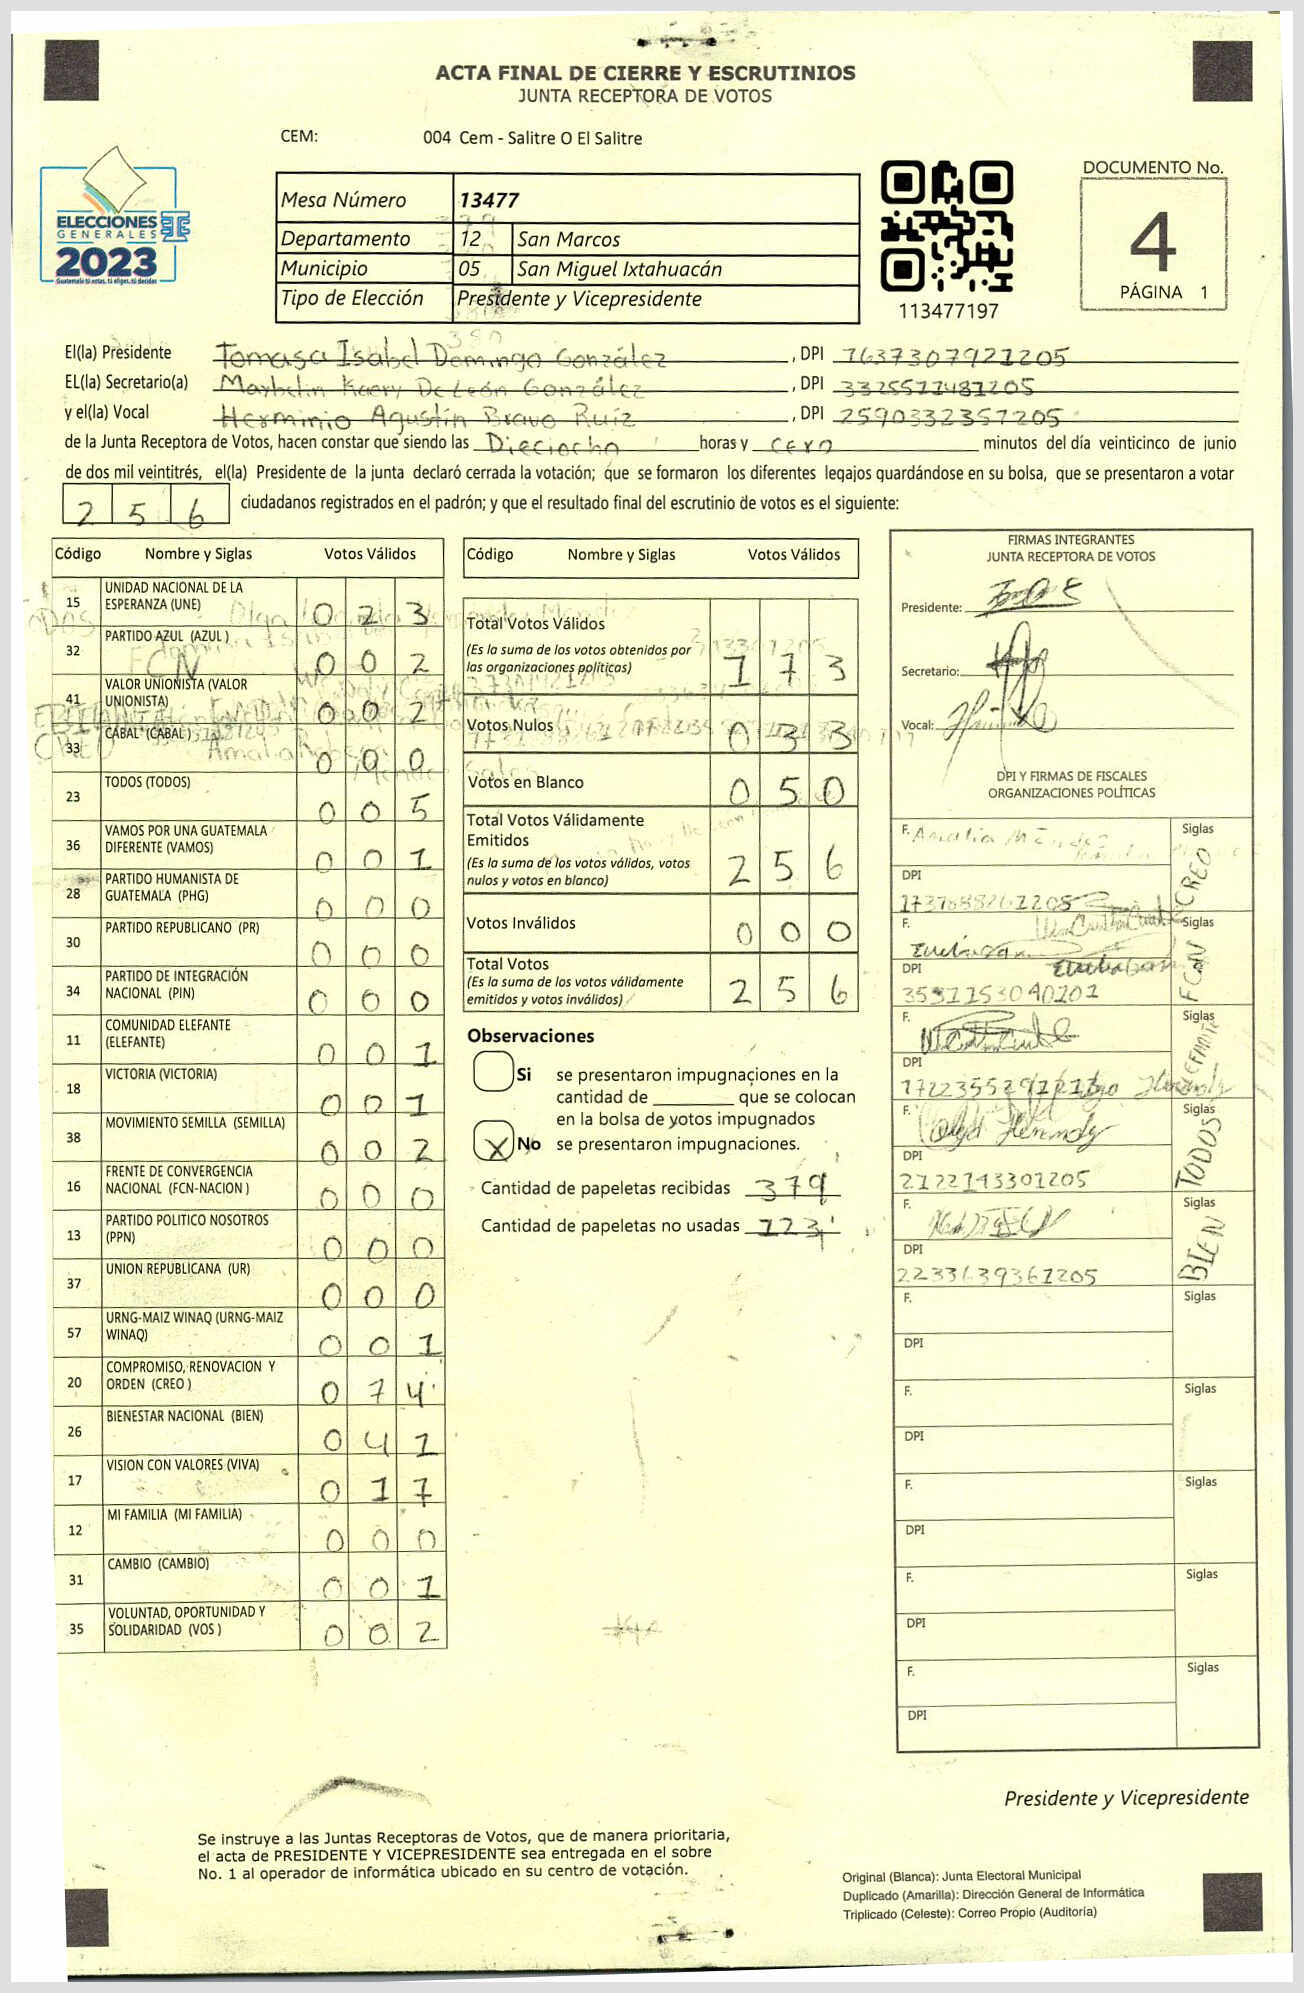 ACTA FINAL DE CIERRE Y ESCRUTINIOS
JUNTA RECEPTORA DE VOTOS
CEM: 004 Cem - Salitre O El Salitre
ELECCIONES
GENERALES
2023
Guatemala tú votas, tú eliges, tú decides
Mesa Número 13477
Departamento 12 San Marcos
Municipio 05 San Miguel Ixtahuacán
Tipo de Elección Presidente y Vicepresidente
113477197
DOCUMENTO No.
4
PÁGINA 1
El(la) Presidente Tomasa Isabel Domingo González, DPI 1637307921205
EL(la) Secretario(a) Maybelin Keery De León González, DPI 3325577481205
y el(la) Vocal Herminio Agustín Bravo Ruíz, DPI 2590332357205
de la Junta Receptora de Votos, hacen constar que siendo las Dieciocho horas y cero minutos del día veinticinco de junio
de dos mil veintitrés, el(la) Presidente de la junta declaró cerrada la votación; que se formaron los diferentes legajos guardándose en su bolsa, que se presentaron a votar
256 ciudadanos registrados en el padrón; y que el resultado final del escrutinio de votos es el siguiente:
Código Nombre y Siglas Votos Válidos
15 UNIDAD NACIONAL DE LA ESPERANZA (UNE) 0 2 3
32 PARTIDO AZUL (AZUL) 0 0 2
41 VALOR UNIONISTA (VALOR UNIONISTA) 0 0 2
33 CABAL (CABAL) 0 0 0
23 TODOS (TODOS) 0 0 5
36 VAMOS POR UNA GUATEMALA DIFERENTE (VAMOS) 0 0 1
28 PARTIDO HUMANISTA DE GUATEMALA (PHG) 0 0 0
30 PARTIDO REPUBLICANO (PR) 0 0 0
34 PARTIDO DE INTEGRACIÓN NACIONAL (PIN) 0 0 0
11 COMUNIDAD ELEFANTE (ELEFANTE) 0 0 1
18 VICTORIA (VICTORIA) 0 0 1
38 MOVIMIENTO SEMILLA (SEMILLA) 0 0 2
16 FRENTE DE CONVERGENCIA NACIONAL (FCN-NACION) 0 0 0
13 PARTIDO POLITICO NOSOTROS (PPN) 0 0 0
37 UNION REPUBLICANA (UR) 0 0 0
57 URNG-MAIZ WINAQ (URNG-MAIZ WINAQ) 0 0 1
20 COMPROMISO, RENOVACION Y ORDEN (CREO) 0 7 4
26 BIENESTAR NACIONAL (BIEN) 0 4 1
17 VISION CON VALORES (VIVA) 0 1 7
12 MI FAMILIA (MI FAMILIA) 0 0 0
31 CAMBIO (CAMBIO) 0 0 1
35 VOLUNTAD, OPORTUNIDAD Y SOLIDARIDAD (VOS) 0 0 2
Código Nombre y Siglas Votos Válidos
Total Votos Válidos 1 7 3
(Es la suma de los votos obtenidos por
las organizaciones políticas)
Votos Nulos 0 3 3
Votos en Blanco 0 5 0
Total Votos Válidamente
Emitidos 2 5 6
(Es la suma de los votos válidos, votos
nulos y votos en blanco)
Votos Inválidos 0 0 0
Total Votos 2 5 6
(Es la suma de los votos válidamente
emitidos y votos inválidos)
Observaciones
Si se presentaron impugnaciones en la
cantidad de ________ que se colocan
en la bolsa de votos impugnados
X No se presentaron impugnaciones.
Cantidad de papeletas recibidas 379
Cantidad de papeletas no usadas 123
FIRMAS INTEGRANTES
JUNTA RECEPTORA DE VOTOS
Presidente:
Secretario:
Vocal:
DPI Y FIRMAS DE FISCALES
ORGANIZACIONES POLÍTICAS
F. Amalia Méndez Siglas CREO
DPI
1737688261205
F. Siglas FCN
DPI
3531153040101
F. Siglas ELEFANTE
DPI
F. Olga Hernandez Siglas TODOS
DPI
2122193301205
F. Siglas BIEN
DPI
2233639361205
F. Siglas
DPI
F. Siglas
DPI
F. Siglas
DPI
F. Siglas
DPI
F. Siglas
DPI
Presidente y Vicepresidente
Se instruye a las Juntas Receptoras de Votos, que de manera prioritaria,
el acta de PRESIDENTE Y VICEPRESIDENTE sea entregada en el sobre
No. 1 al operador de informática ubicado en su centro de votación.
Original (Blanca): Junta Electoral Municipal
Duplicado (Amarilla): Dirección General de Informática
Triplicado (Celeste): Correo Propio (Auditoría)